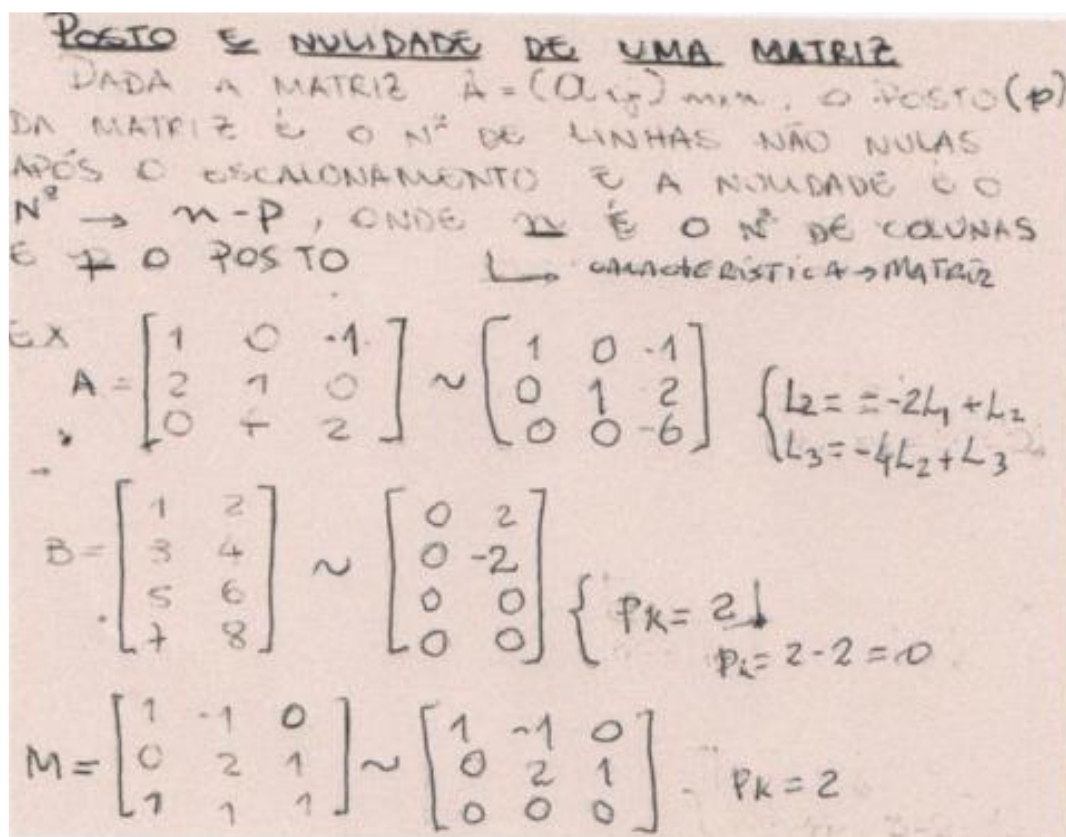 POSTO E NULIDADE DE UMA MATRIZ
DADA A MATRIZ A = (aij) mxn, O POSTO (p)
DA MATRIZ É O Nº DE LINHAS NÃO NULAS
APÓS O ESCALONAMENTO E A NULIDADE É O
Nº → n-p, ONDE n É O Nº DE COLUNAS
E p O POSTO ↳ CARACTERÍSTICA → MATRIZ
EX
A = [1 0 -1] ~ [1 0 -1]
[2 1 0] [0 1 2] { L2 = = -2L1 + L2
[0 4 2] [0 0 -6] L3 = -4L2 + L3
B = [1 2] ~ [0 2]
[3 4] [0 -2]
[5 6] [0 0] { PK = 2
[7 8] [0 0] = 2 - 2 = 0
M = [1 -1 0] ~ [1 -1 0]
[0 2 1] [0 2 1] PK = 2
[1 1 1] [0 0 0]